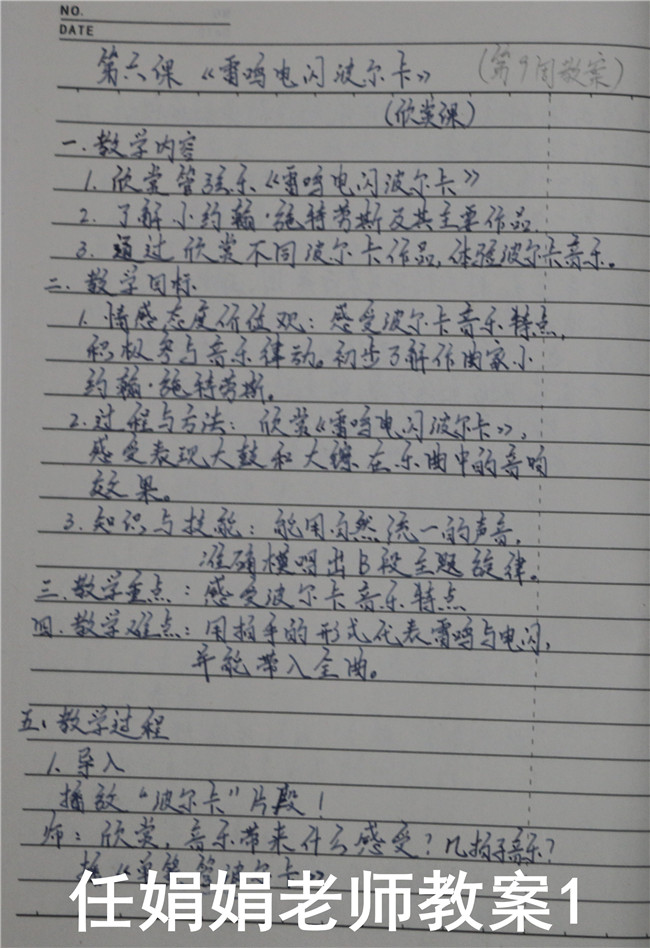 NO.
DATE
第六课《雷鸣电闪波尔卡》（第9周教案）
（欣赏课）
一.教学内容
1. 欣赏管弦乐《雷鸣电闪波尔卡》
2. 了解小约翰·施特劳斯及其主要作品.
3. 通过欣赏不同波尔卡作品,体验波尔卡音乐。
二.教学目标
1. 情感态度价值观：感受波尔卡音乐特点,
积极参与音乐律动。初步了解作曲家小
约翰·施特劳斯。
2.过程与方法：欣赏《雷鸣电闪波尔卡》,
感受表现大鼓和大镲在乐曲中的音响
效果。
3.知识与技能：能用自然流一的声音,
准确模唱出B段主题旋律。
三.教学重点：感受波尔卡音乐特点
四.教学难点：用拍手的形式代表雷鸣与电闪,
并能带入全曲。
五.教学过程
1. 导入
播放“波尔卡”片段！
师：欣赏,音乐带来什么感受？几拍子音乐？
波尔卡》
任娟娟老师教案1